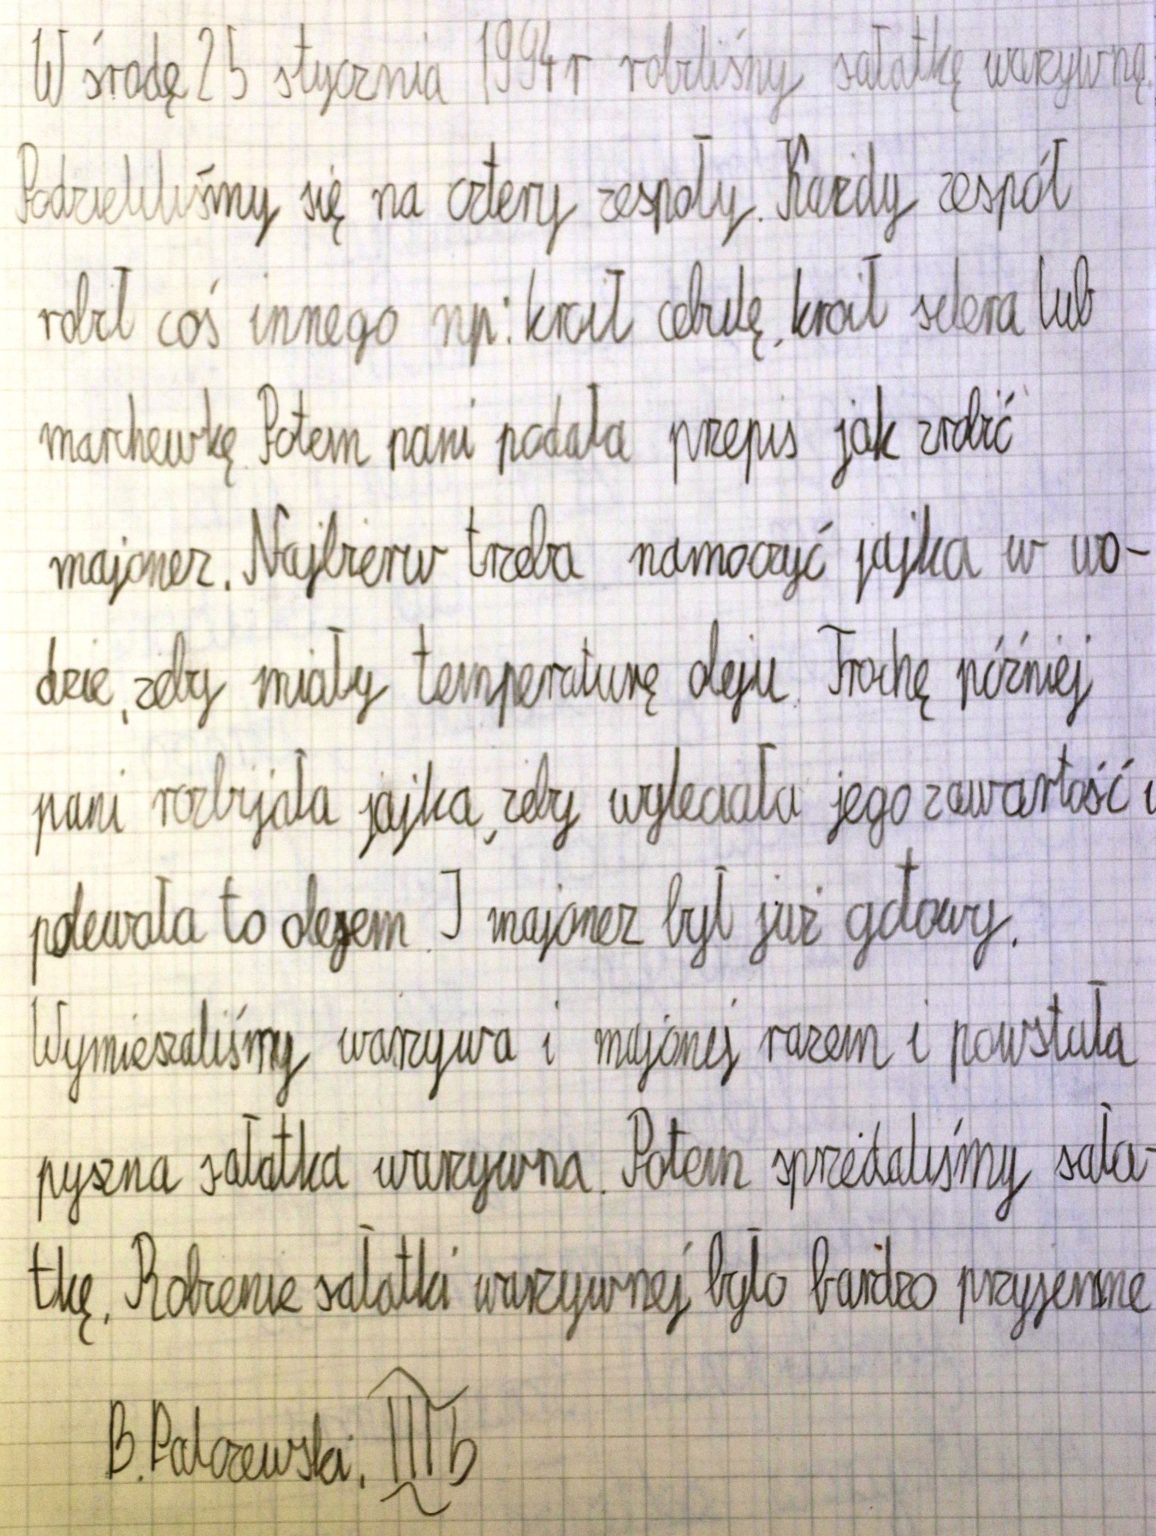 W środę 25 stycznia 1994r robiliśmy sałatkę warzywną.
Podzieliliśmy się na cztery zespoły. Każdy zespół
robił coś innego np: kroił cebulę, kroił selera lub
marchewkę. Potem pani podała przepis jak zrobić
majonez. Najbierw trzeba namoczyć jajka w wo-
dzie, żeby miały temperaturę oleju. Trochę później
pani rozbijała jajka, żeby wyleciała jego zawartość i
polewała to olejem. I majonez był już gotowy.
Wymieszaliśmy warzywa i majonej razem i powstała
pyszna sałatka warzywna. Potem sprzedaliśmy sała-
tkę. Robienie sałatki warzywnej było bardzo przyjemne
B. Palczewski, III b